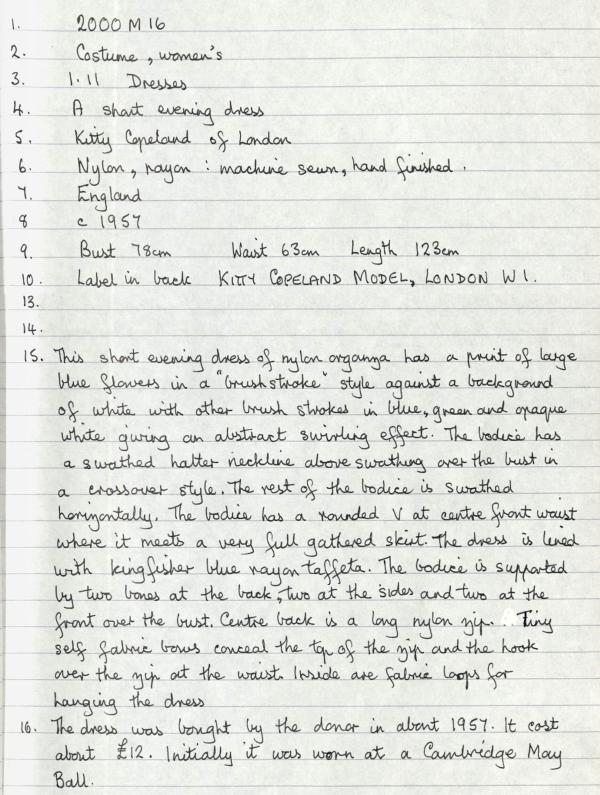 1. 2000 M 16
2. Costume, women's
3. 1.11 Dresses
4. A short evening dress
5. Kitty Copeland of London
6. Nylon, rayon : machine sewn, hand finished.
7. England
8 c 1957
9. Bust 78cm Waist 63cm Length 123cm
10. Label in back KITTY COPELAND MODEL, LONDON W1.
13.
14.
15. This short evening dress of nylon organza has a print of large
blue flowers in a "brushstroke" style against a background
of white with other brush strokes in blue, green and opaque
white giving an abstract swirling effect. The bodice has
a swathed halter neckline above swathing over the bust in
a crossover style. The rest of the bodice is swathed
horizontally. The bodice has a rounded V at centre front waist
where it meets a very full gathered skirt. The dress is lined
with kingfisher blue rayon taffeta. The bodice is supported
by two bones at the back, two at the sides and two at the
front over the bust. Centre back is a long nylon zip. Tiny
self fabric bows conceal the top of the zip and the hook
over the zip at the waist. Inside are fabric loops for
hanging the dress
16. The dress was bought by the donor in about 1957. It cost
about £12. Initially it was worn at a Cambridge May
Ball.